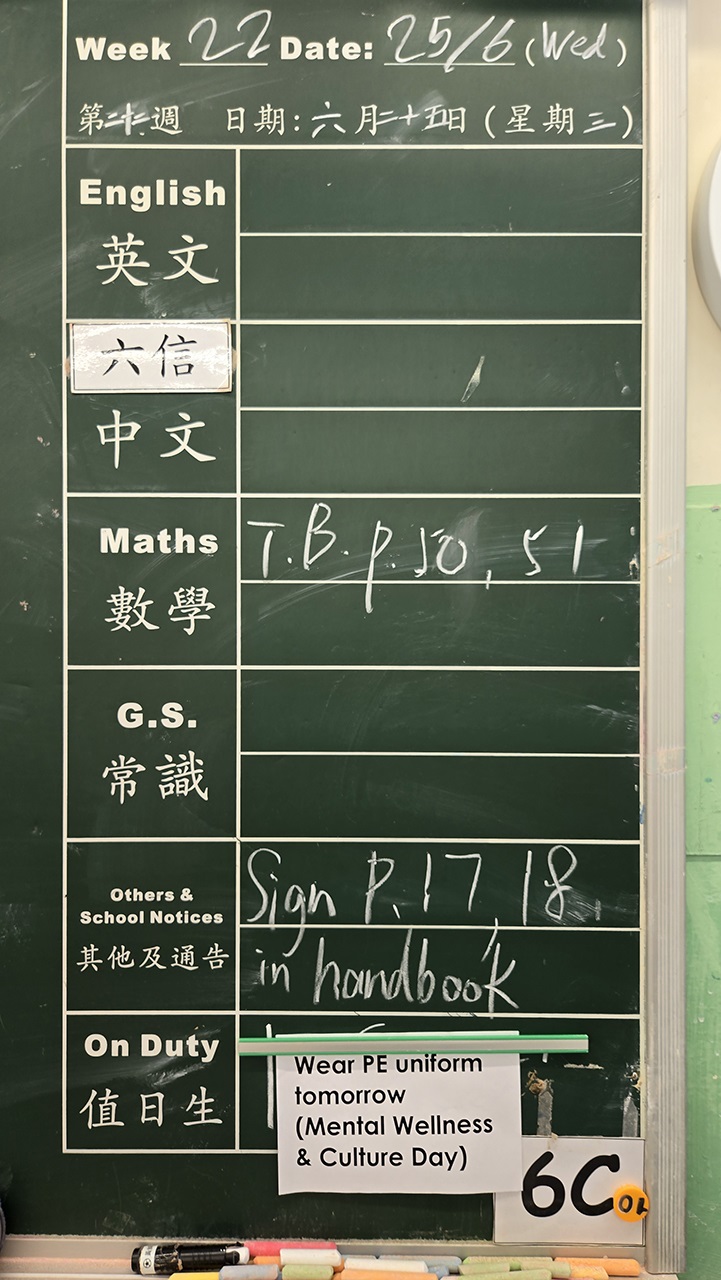 Week 22 Date: 25/6 (Wed)
第二十二週 日期: 六月二十五日 (星期三)
English
英文
六信
中文
Maths T.B. p.50, 51
數學
G.S.
常識
Others & Sign P.17, 18
School Notices
其他及通告 in handbook
On Duty
值日生
Wear PE uniform
tomorrow
(Mental Wellness
& Culture Day)
6C